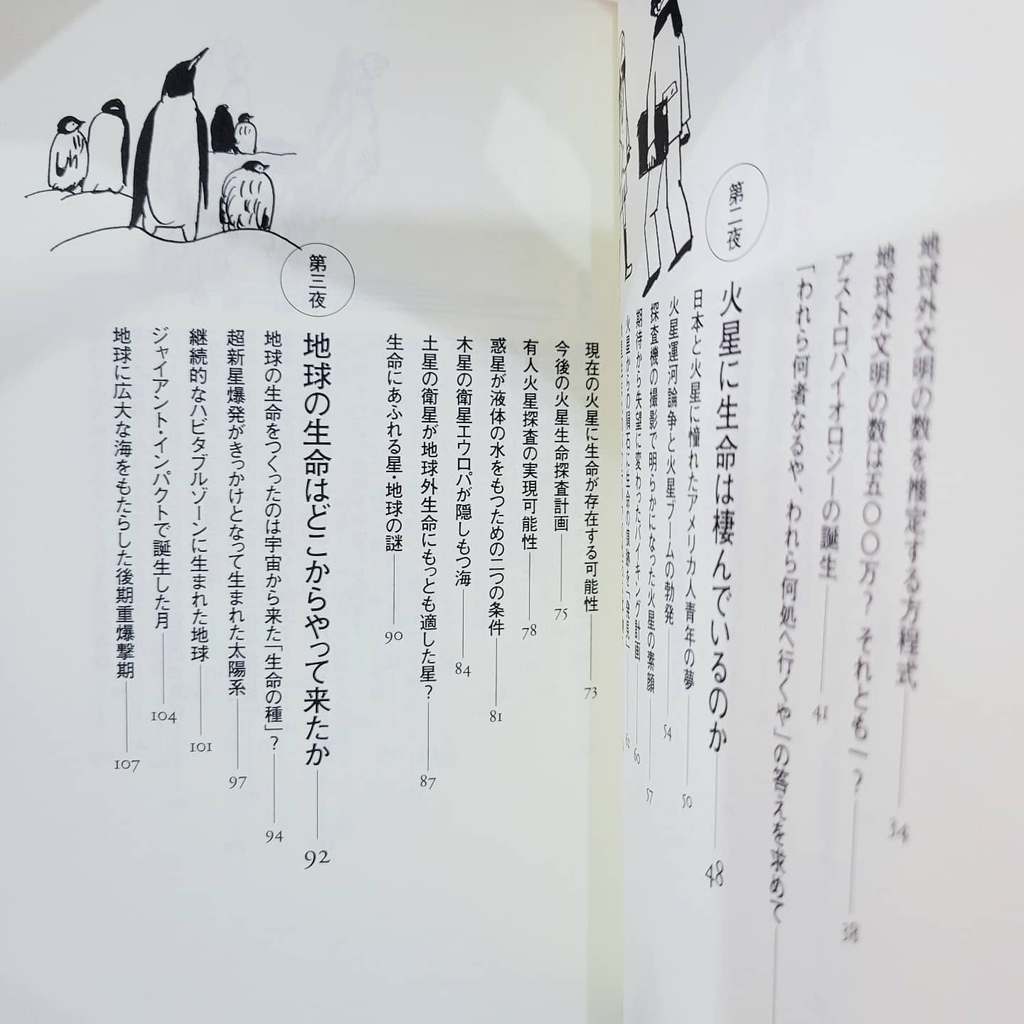 地球外文明の数を推定する方程式 34
地球外文明の数は五〇〇万？ それとも一？ 38
アストロバイオロジーの誕生 41
「われら何者なるや、われら何処へ行くや」の答えを求めて
第二夜
火星に生命は棲んでいるのか 48
日本と火星に憧れたアメリカ人青年の夢 50
火星運河論争と火星ブームの勃発 54
探査機の撮影で明らかになった火星の素顔 57
期待から失望に変わったバイキング計画 60
火星からの隕石に生命の痕跡を「発見」 62
現在の火星に生命が存在する可能性 73
今後の火星生命探査計画 75
有人火星探査の実現可能性 78
惑星が液体の水をもつための二つの条件 81
木星の衛星エウロパが隠しもつ海 84
土星の衛星が地球外生命にもっとも適した星？ 87
生命にあふれる星・地球の謎 90
第三夜
地球の生命はどこからやって来たか 92
地球の生命をつくったのは宇宙から来た「生命の種」？ 94
超新星爆発がきっかけとなって生まれた太陽系 97
継続的なハビタブルゾーンに生まれた地球 101
ジャイアント・インパクトで誕生した月 104
地球に広大な海をもたらした後期重爆撃期 107